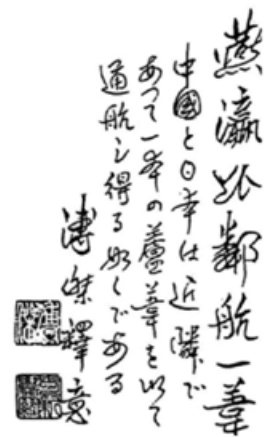 燕瀛比鄰航一葦
中國と日本は近隣で
あつて一本の蘆葦を以て
通航し得る如くである
溥傑釋意